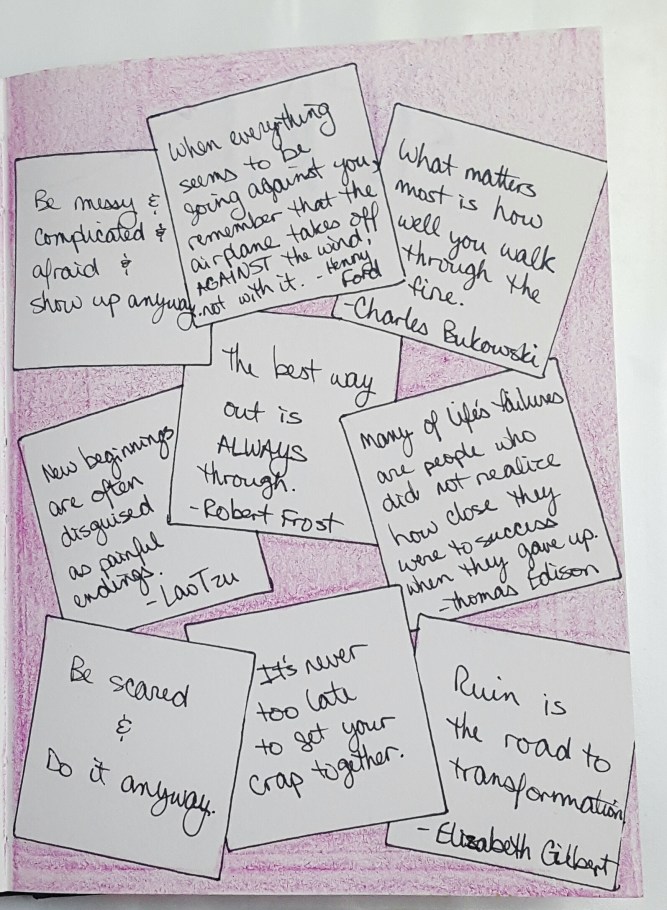 Be messy &
complicated &
afraid &
show up anyway.
When everything
seems to be
going against you,
remember that the
airplane takes off
AGAINST the wind,
not with it. - Henry
Ford
What matters
most is how
well you walk
through the
fire.
- Charles Bukowski
New beginnings
are often
disguised
as painful
endings.
- Lao Tzu
The best way
out is
ALWAYS
through.
- Robert Frost
Many of life's failures
are people who
did not realize
how close they
were to success
when they gave up.
- Thomas Edison
Be scared
&
Do it anyway.
It's never
too late
to get your
crap together.
Ruin is
the road to
transformation
- Elizabeth Gilbert